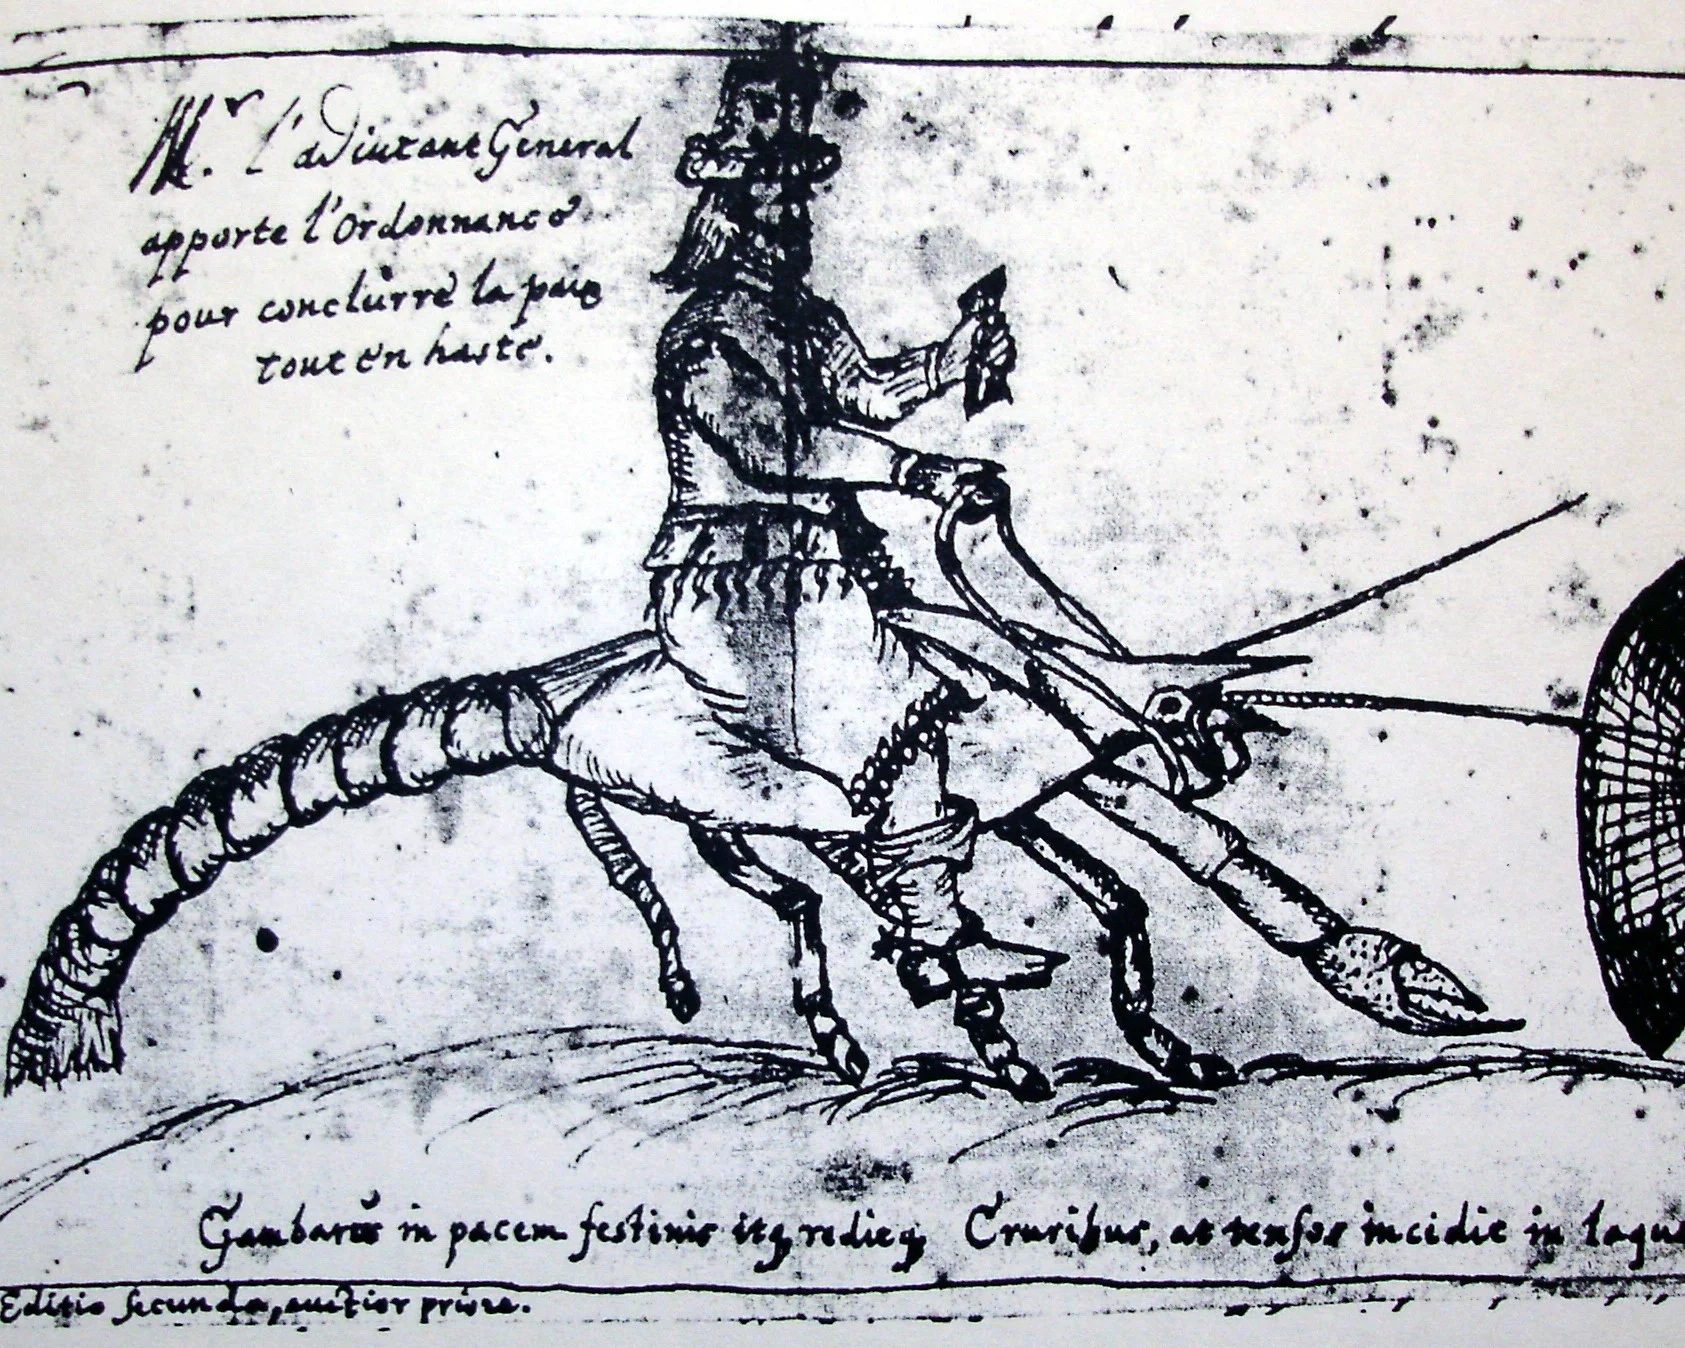 M.r l'adiutant General
apporte l'Ordonnance
pour conclurre la paix
tout en haste.
in pacem festinis itq redieq Cruribus, at tensos incidit in laque
Editio secunda, auctior priore.